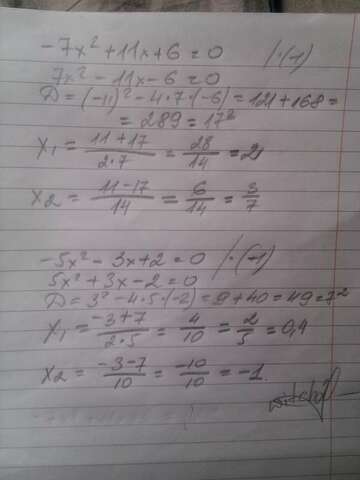 -7x² + 11x + 6 = 0 /·(-1)
7x² - 11x - 6 = 0
D = (-11)² - 4·7·(-6) = 121 + 168 =
= 289 = 17²
x₁ = (11+17)/(2·7) = 28/14 = 2
x₂ = (11-17)/14 = 6/14 = 3/7
-5x² - 3x + 2 = 0 /·(-1)
5x² + 3x - 2 = 0
D = 3² - 4·5·(-2) = 9 + 40 = 49 = 7²
x₁ = (-3+7)/(2·5) = 4/10 = 2/5 = 0,4
x₂ = (-3-7)/10 = -10/10 = -1